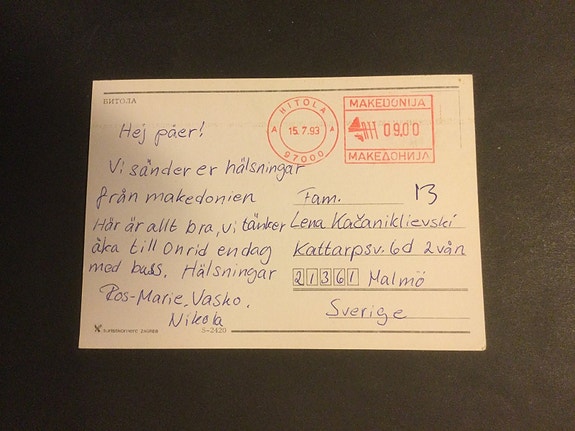 БИТОЛА
HITOLA
A 15.7.93 A
97000
MAKEDONIJA
09,00
МАКЕДОНИЈА
Hej påer!
Vi sänder er hälsningar
från makedonien
Här är allt bra, vi tänker
åka till Onrid en dag
med buss. Hälsningar
Ros-Marie, Vasko,
Nikola
Fam.
Lena Kačaniklievski
Kattarpsv. 6d 2vån
21361 Malmö
Sverige
S-2420